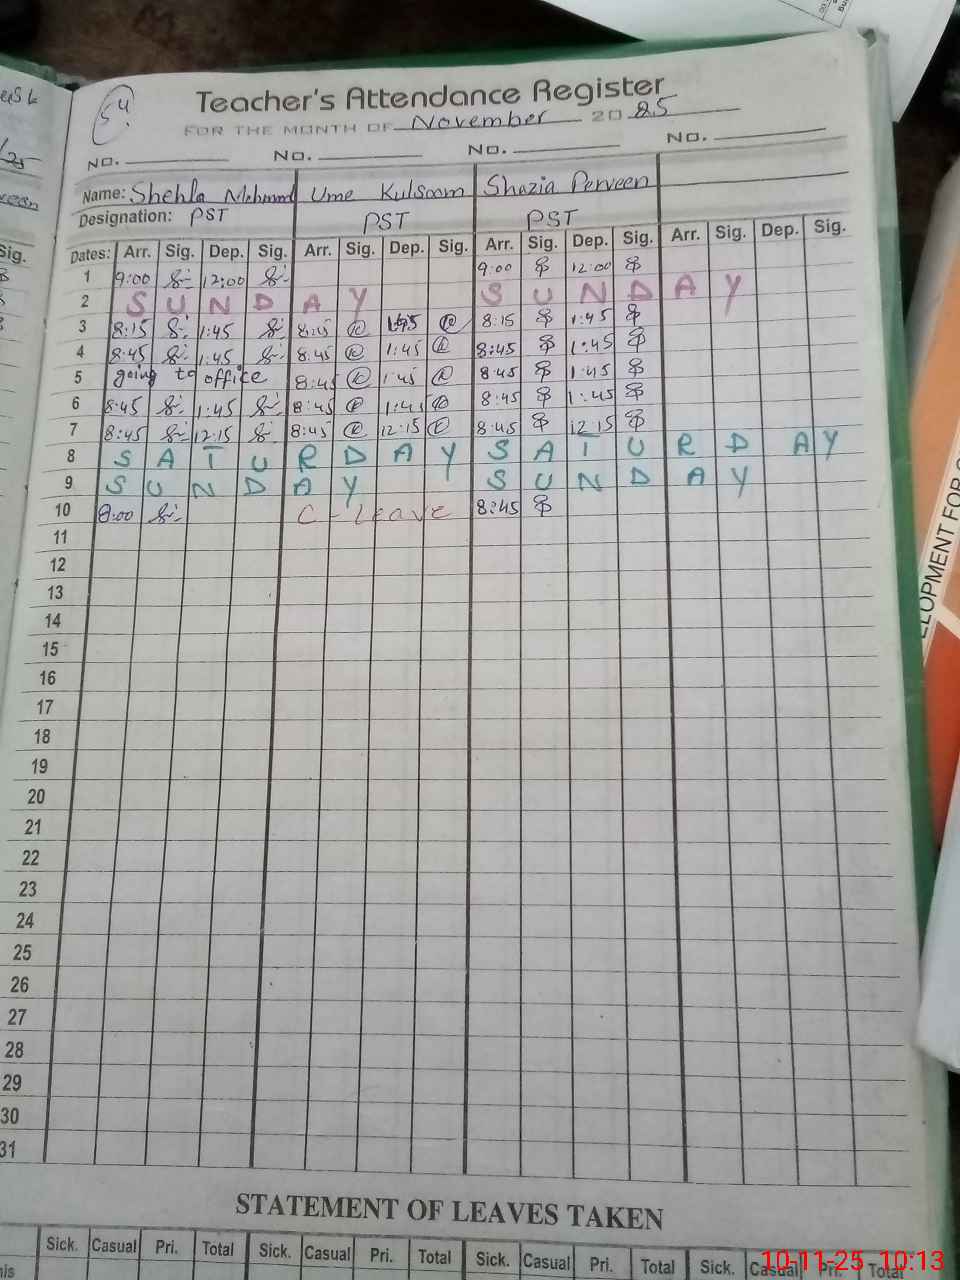 Teacher's Attendance Register
FOR THE MONTH OF November 2025
NO. NO. NO. NO.
Name: Shehla Mehmood Ume Kulsoom Shazia Perveen
Designation: PST PST PST
Dates: Arr. Sig. Dep. Sig. Arr. Sig. Dep. Sig. Arr. Sig. Dep. Sig. Arr. Sig. Dep. Sig.
1 9:00 12:00 9:00 12:00
2 SUNDAY SUNDAY
3 8:15 1:45 8:15 1:45 8:15 1:45
4 8:45 1:45 8:45 1:45 8:45 1:45
5 going to office 8:45 1:45 8:45 1:45
6 8:45 1:45 8:45 1:45 8:45 1:45
7 8:45 12:15 8:45 12:15 8:45 12:15
8 SATURDAY SATURDAY
9 SUNDAY SUNDAY
10 8:00 C-Leave 8:45
11
12
13
14
15
16
17
18
19
20
21
22
23
24
25
26
27
28
29
30
31
STATEMENT OF LEAVES TAKEN
Sick. Casual Pri. Total Sick. Casual Pri. Total Sick. Casual Pri. Total Sick. Casual Pri. Total
10-11-25 10:13
ELOPMENT FOR